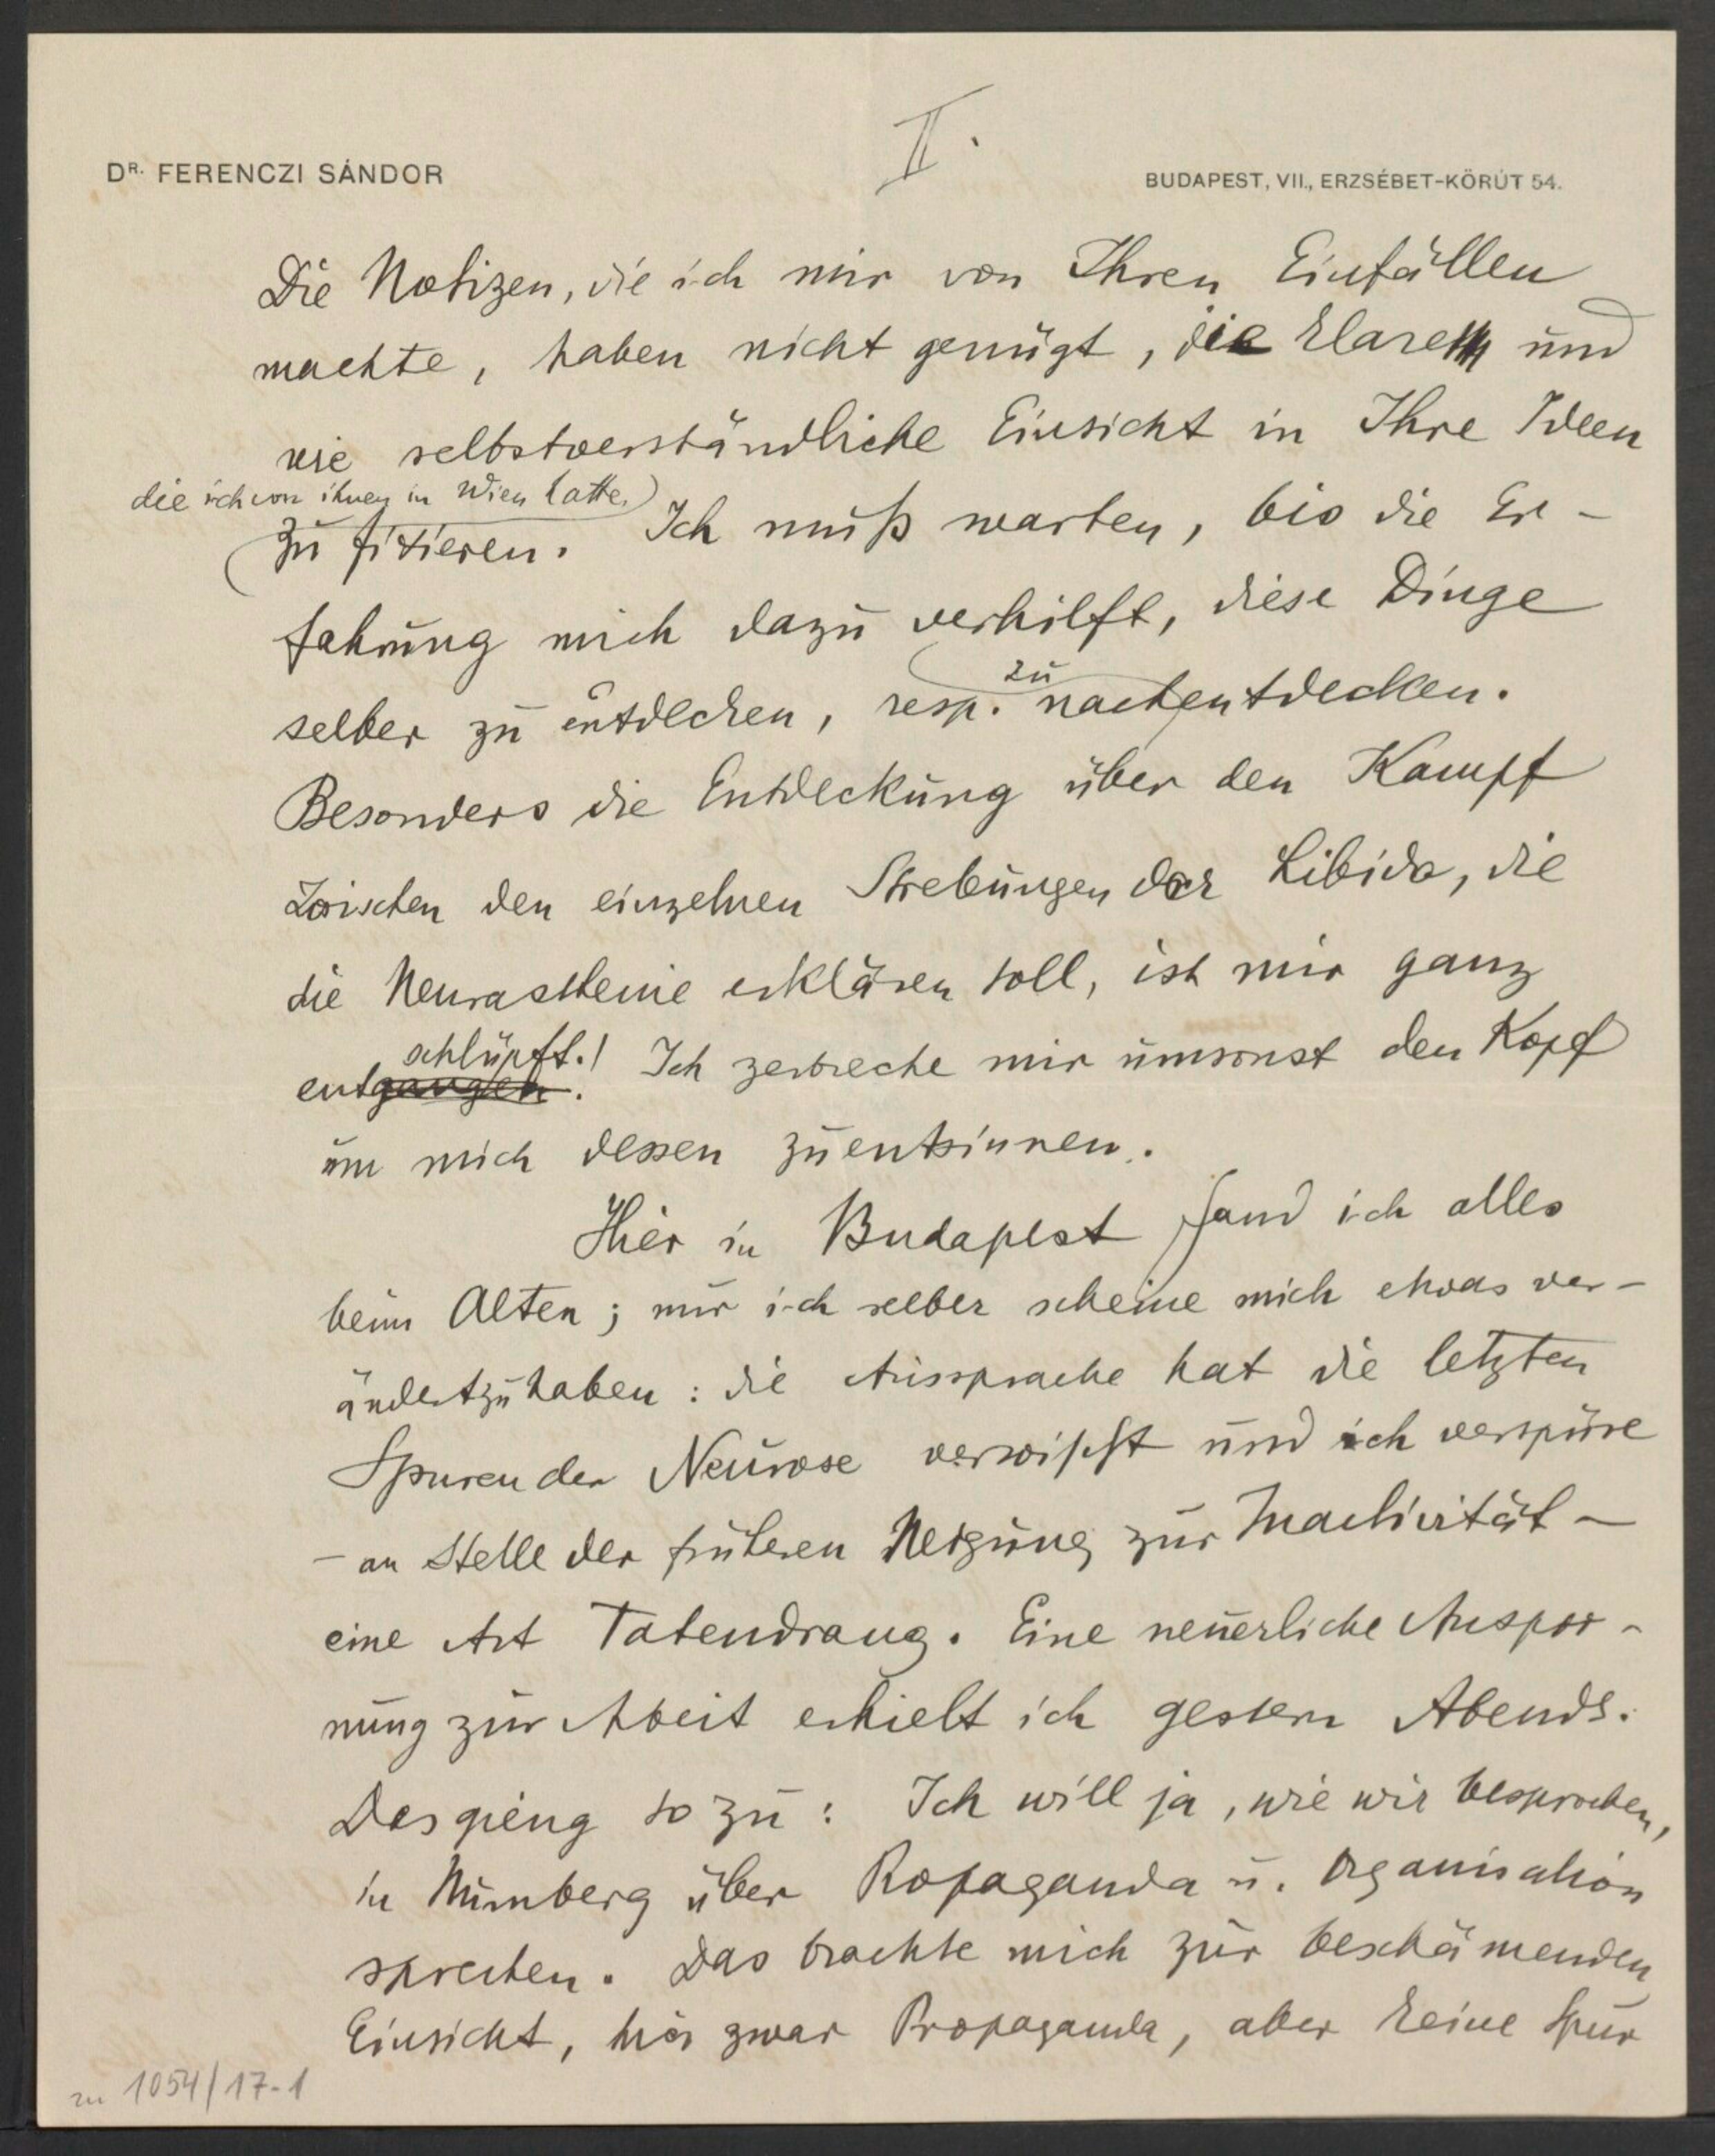 II.
DR. FERENCZI SÁNDOR
BUDAPEST, VII., ERZSÉBET-KÖRÚT 54.
Die Notizen, die ich mir von Ihren Einfällen
machte, haben nicht genügt, die klare und
wie selbstverständliche Einsicht in Ihre Ideen
die ich von ihnen in Wien hatte,
zu fixieren. Ich muß warten, bis die Er-
fahrung mich dazu verhilft, diese Dinge
selber zu entdecken, resp. zu nachentdecken.
Besonders die Entdeckung über den Kampf
zwischen den einzelnen Strebungen der Libido, die
die Neurasthenie erklären soll, ist mir ganz
entschlüpft.! Ich zerbreche mir umsonst den Kopf
um mich dessen zu entsinnen.
Hier in Budapest fand ich alles
beim Alten; nur ich selber scheine mich etwas ver-
ändert zu haben: die Aussprache hat die letzten
Spuren der Neurose verwischt und ich verspüre
– an Stelle der früheren Neigung zur Inactivität –
eine Art Tatendrang. Eine neuerliche Anspor-
nung zur Arbeit erhielt ich gestern Abends.
Das gieng so zu: Ich will ja, wie wir besprochen,
in Nürnberg über Propaganda u. Organisation
sprechen. Das brachte mich zur beschämenden
Einsicht, zwar Propaganda, aber keine Spur
zu 1054/17-1